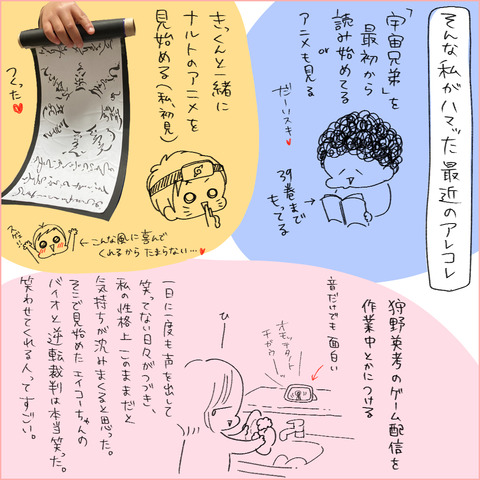 そんな私がハマった最近のアレコレ
「宇宙兄弟」を
最初から
読み始めてる
or
アニメも見る
だーいスキ♥
39巻まで
もってる
きっくんと一緒に
ナルトのアニメを
見始める(私、初見)
つくった♥
←こんな風に喜んで
くれるからたまらない…♥
狩野英孝のゲーム配信を
作業中とかにつける
音だけでも面白い
オモッテタトチガウ
ひー
一日に一度も声を出して
笑ってない日々がつづき、
私の性格上このままだと
気持ちが沈みまくると思った。
そこで見始めたエイコーちゃんの
バイオと逆転裁判は本当笑った。
笑わせてくれる人ってすごい。